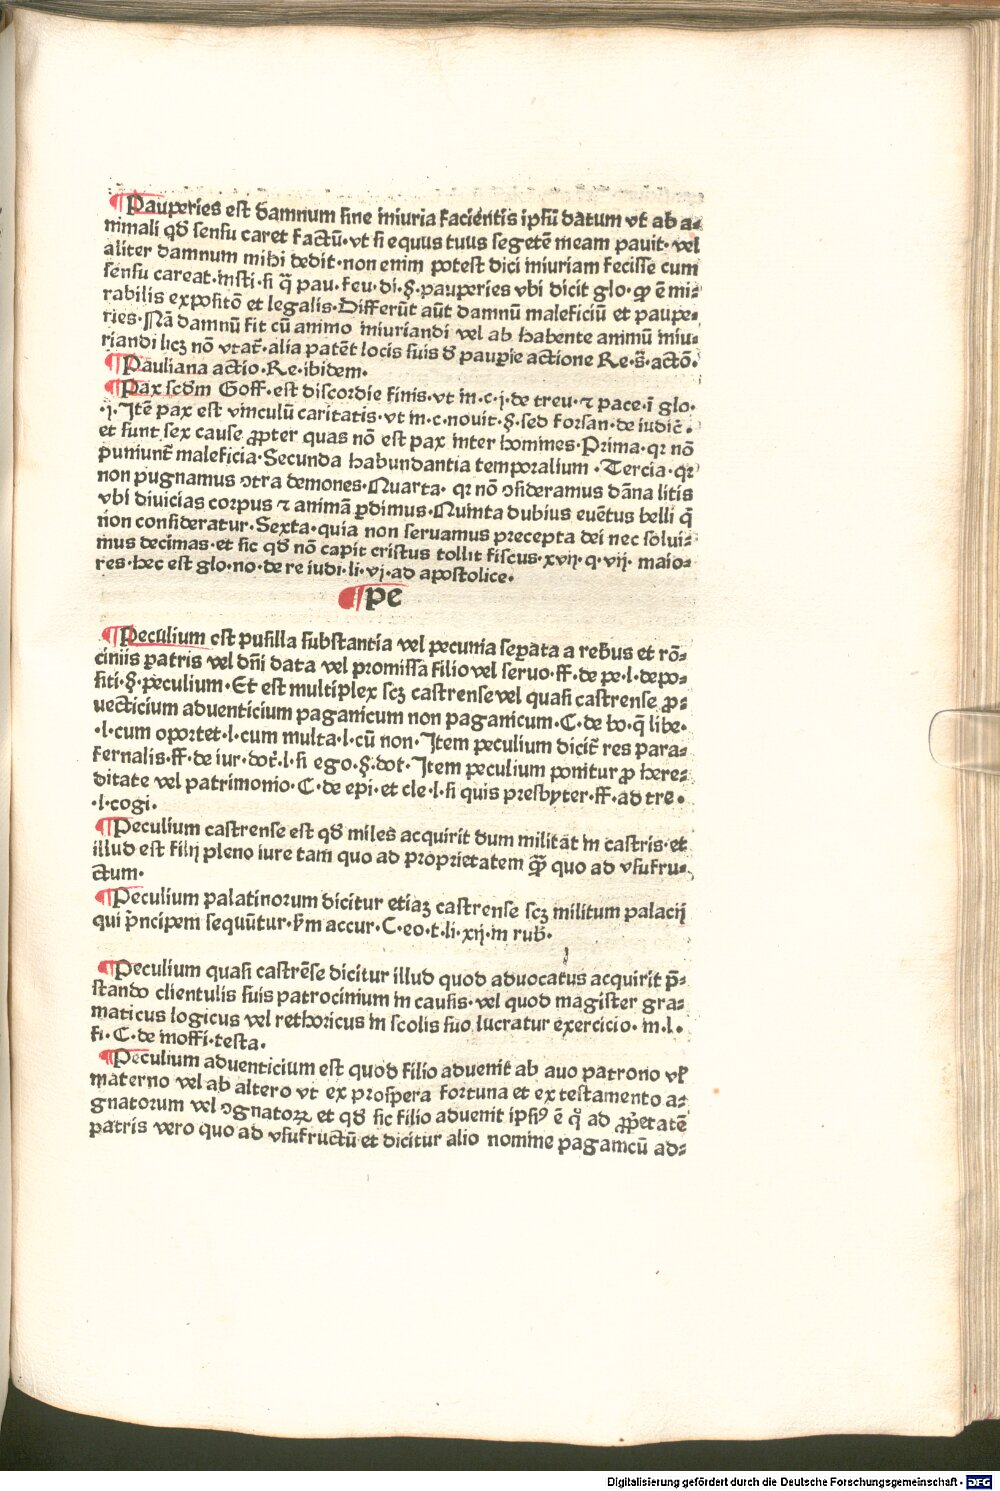 ¶Pauperies est damnum sine iniuria facientis ipsũ datum vt ab a⸗
nimali qđ sensu caret factũ·vt si equus tuus segetẽ meam pauit· vel
aliter damnum mihi dedit·non enim potest dici iniuriam fecisse cum
sensu careat·insti·si q̃ pau·feu·di·§·pauperies vbi dicit glo·ꝙ ẽ mi⸗
rabilis expositõ et legalis·Differũt aũt damnũ maleficiũ et paupe⸗
ries·Nã damnũ fit cũ animo iniuriandi vel ab habente animũ iniu⸗
riandi licꝫ nõ vtat̃·alia patẽt locis suis đ paupie actione Re·s̃·actõ·
¶Pauliana actio·Re·ibidem·
¶Pax scđm Goff·est discordie finis·vt in·c·j·de treu·⁊ pace·ĩ glo·
·j·Itẽ pax est vinculũ caritatis·vt in·c·nouit·§·sed forsan·de iudic̃·
et sunt sex cause ꝓpter quas nõ est pax inter homines·Prima·qꝛ nõ
puniunt̃ maleficia·Secunda habundantia temporalium·Tercia·qꝛ
non pugnamus ↄtra demones·Quarta· qꝛ nõ ↄsideramus dãna litis
vbi diuicias corpus ⁊ animã ꝑdimus·Quinta dubius euẽtus belli q̃
non consideratur·Sexta·quia non seruamus precepta dei nec solui⸗
mus decimas·et sic qđ nõ capit cristus tollit fiscus·xvij·q·vij· maio⸗
res·hec est glo·no·de re iudi·li·vj·ad apostolice·
¶pe
¶Peculium est pusilla substantia vel pecunia seꝑata a rebus et rõ⸗
ciniis patris vel dñi data vel promissa filio vel seruo·ff·de pe·l·depo⸗
siti·§·peculium·Et est multiplex scꝫ castrense vel quasi castrense ꝓ⸗
uecticium aduenticium paganicum non paganicum·C·de bo·q̃ libe·
·l·cum oportet·l·cum multa·l·cũ non·Item peculium dicit̃ res para⸗
fernalis·ff·de iur·dot̃·l·si ego·§·dot·Item peculium ponitur ꝓ here⸗
ditate vel patrimonio·C·de epi·et cle·l·si quis presbyter·ff·ad tre·
·l·cogi·
¶Peculium castrense est qđ miles acquirit dum militat in castris·et
illud est filij pleno iure tam quo ad proprietatem ꝙ̃ quo ad vsufru⸗
ctum·
¶Peculium palatinorum dicitur etiaꝫ castrense scꝫ militum palacij
qui p̃ncipem sequũtur·ẜm accur·C·eo·t·li·xij·in rub̃·
¶Peculium quasi castrẽse dicitur illud quod aduocatus acquirit p̃⸗
stando clientulis suis patrocinium in causis·vel quod magister gra⸗
maticus logicus vel rethoricus in scolis suo lucratur exercicio· in·l·
fi·C·de inoffi·testa·
¶Peculium aduenticium est quod filio aduenit ab auo patrono vł
materno vel ab altero vt ex prospera fortuna et ex testamento a⸗
gnatorum vel ↄgnatoꝝ et qđ sic filio aduenit ipsiꝰ ẽ q̊ ad ꝓpetatẽ
patris vero quo ad vsufructũ et dicitur alio nomine paganicũ ad⸗
Digitalisierung gefördert durch die Deutsche Forschungsgemeinschaft · DFG